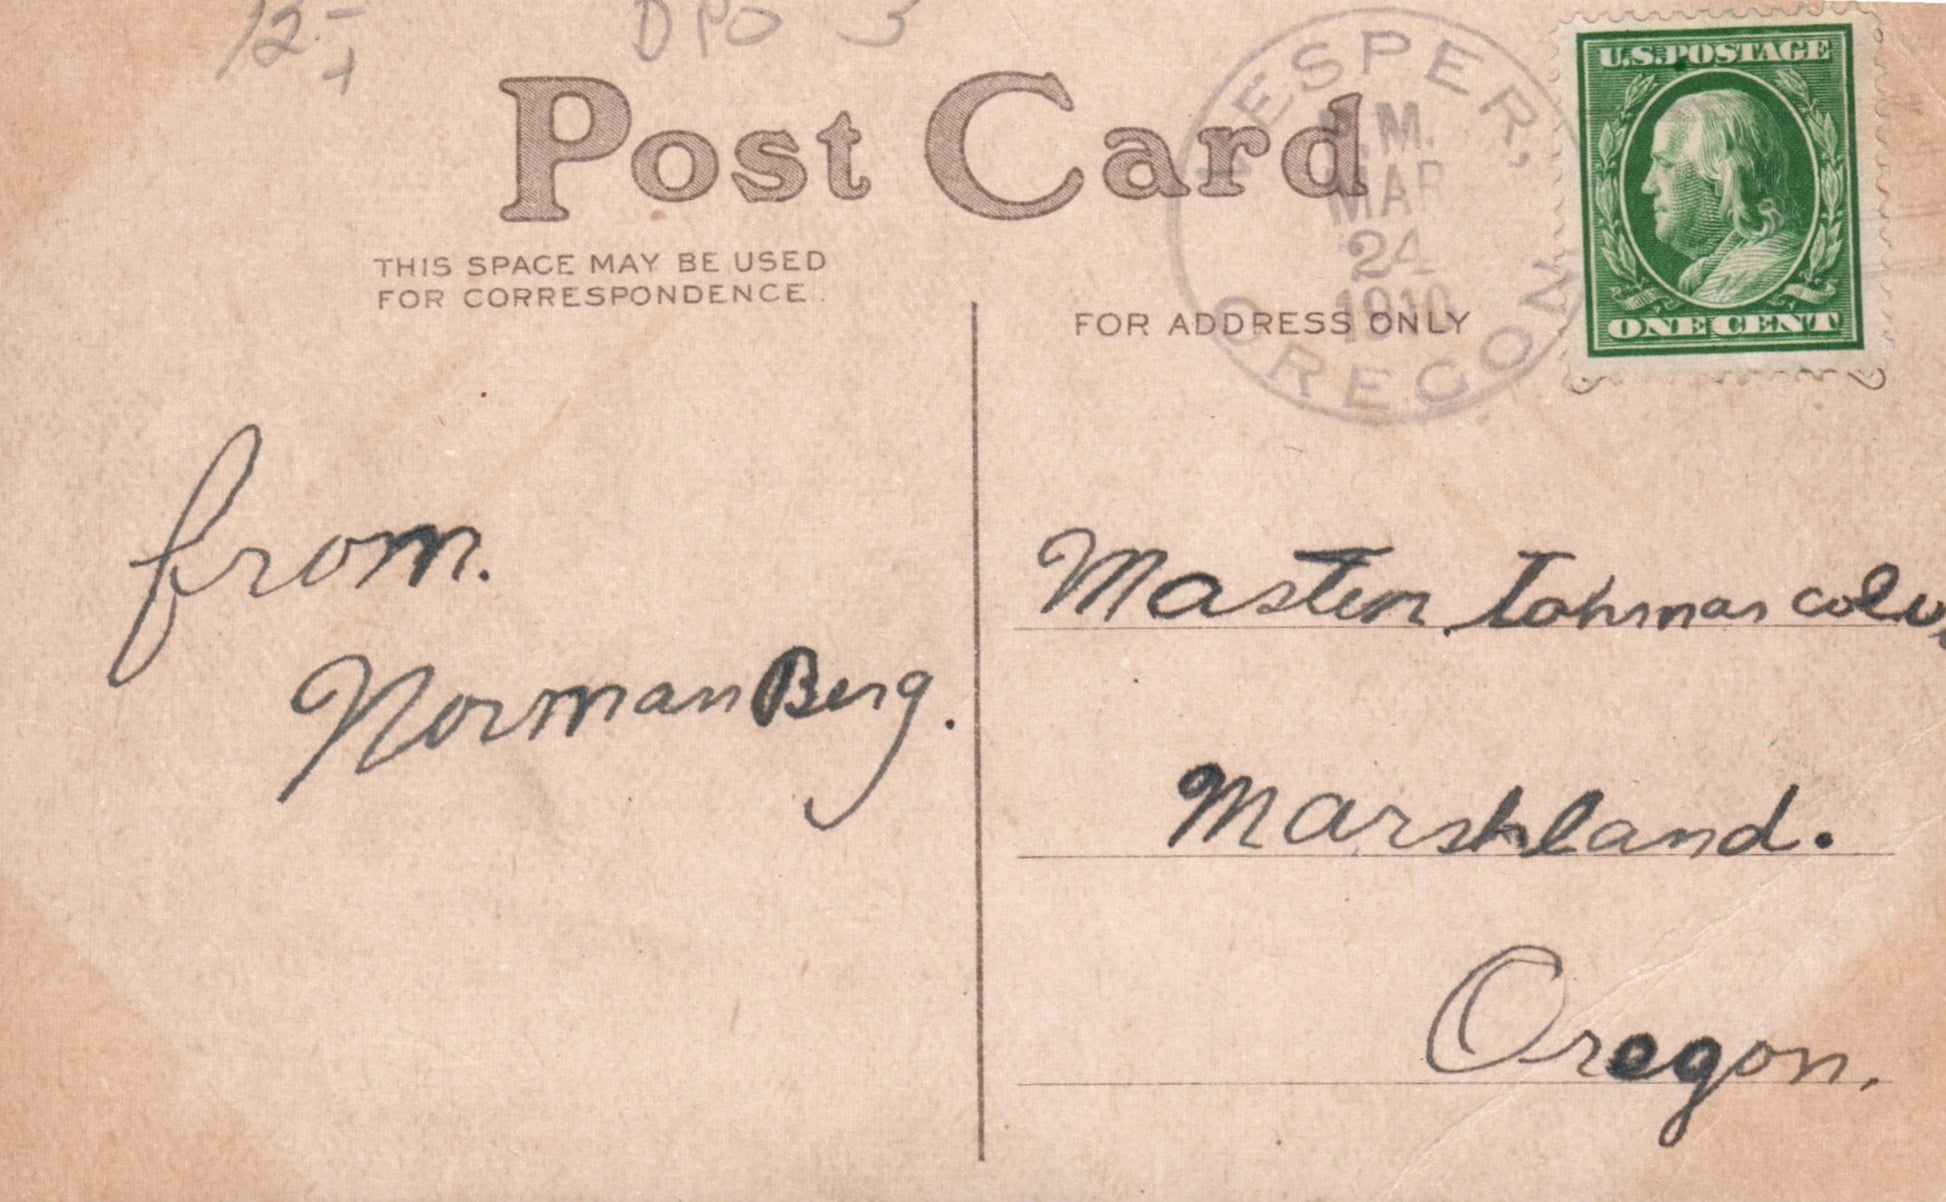 12.-
DPO 3
Post Card
THIS SPACE MAY BE USED
FOR CORRESPONDENCE.
FOR ADDRESS ONLY
VESPER,
M.
MAR
24
1910
OREGON
U.S. POSTAGE
ONE CENT
from.
Norman Berg.
Master
Marshland.
Oregon.